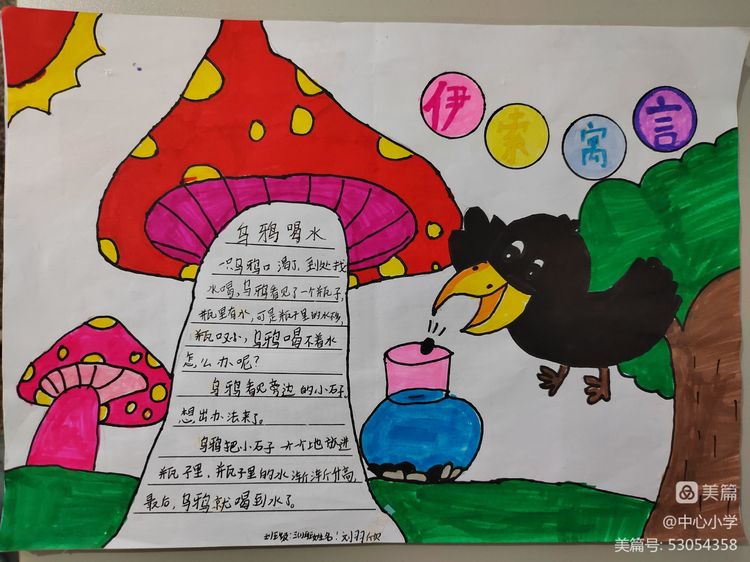 伊索寓言
乌鸦喝水
一只乌鸦口渴了,到处找
水喝,乌鸦看见了一个瓶子,
瓶里有水,可是瓶子里的水不多,
瓶口又小,乌鸦喝不着水
怎么办呢?
乌鸦看见旁边的小石子,
想出办法来了。
乌鸦把小石子一个个地放进
瓶子里,瓶子里的水渐渐升高,
最后,乌鸦就喝到水了。
姓名:刘羽
美篇
@中心小学
美篇号: 53054358